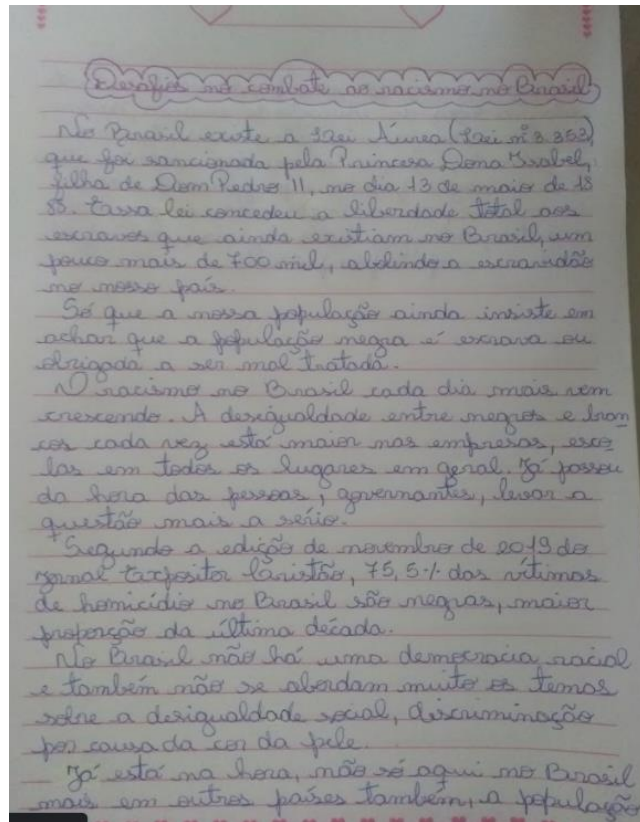 Desafios no combate ao racismo no Brasil
No Brasil existe a Lei Áurea (Lei nº 3.353),
que foi sancionada pela Princesa Dona Isabel,
filha de Dom Pedro II, no dia 13 de maio de 18
88. Essa lei concedeu a liberdade total aos
escravos que ainda existiam no Brasil, um
pouco mais de 700 mil, abolindo a escravidão
no nosso país.
Só que a nossa população ainda insiste em
achar que a população negra é escrava ou
obrigada a ser mal tratada.
O racismo no Brasil cada dia mais vem
crescendo. A desigualdade entre negros e bran
cos cada vez está maior nas empresas, esco
las em todos os lugares em geral. Já passou
da hora das pessoas, governantes, levar a
questão mais a sério.
Segundo a edição de novembro de 2019 do
jornal Expositor Cristão, 75,5% das vítimas
de homicídio no Brasil são negras, maior
proporção da última década.
No Brasil não há uma democracia racial
e também não se abordam muito os temas
sobre a desigualdade social, discriminação
por causa da cor da pele.
Já está na hora, não só aqui no Brasil
mais em outros países também, a população